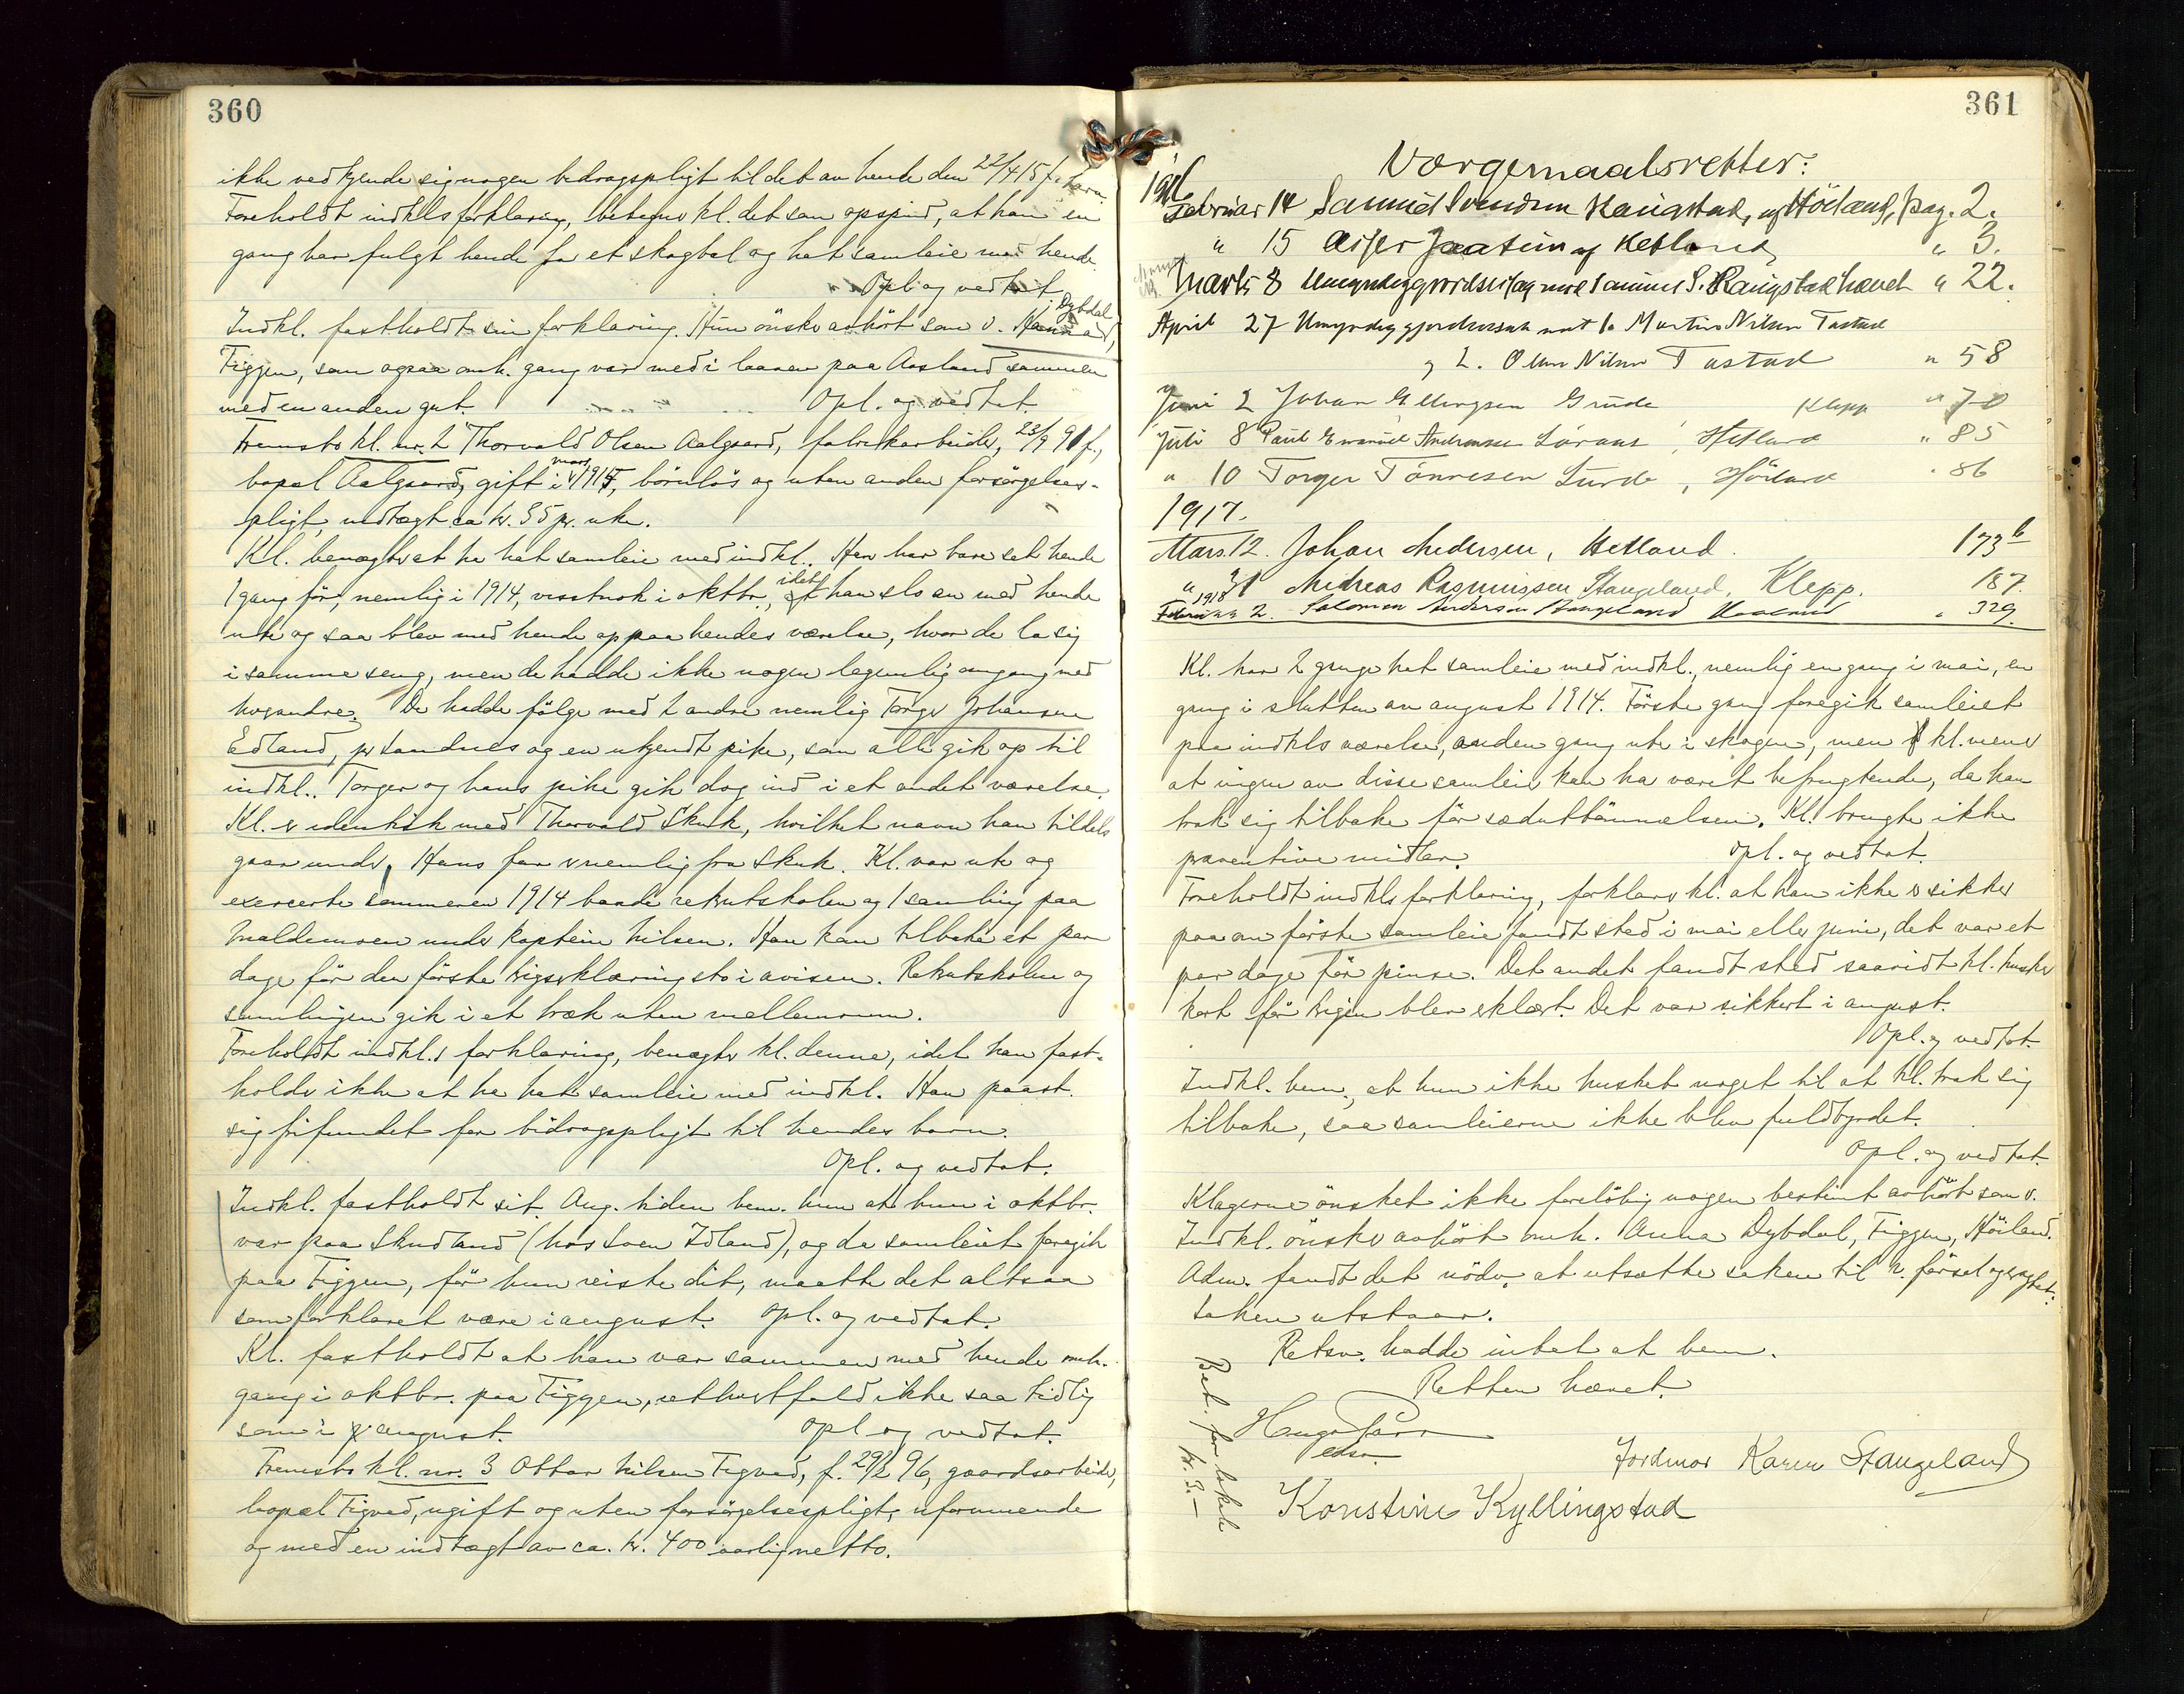 360
ikke vedkjende sig nogen bidragspligt til det av hende den 22/4 15 f. barn.
Foreholdt indkls forklaring, betegner kl. det som opspind, at han en
gang har fulgt hende fra et skogbal og hat samleie med hende.
Opl. og vedtat
Indkl. fastholdt sin forklaring. Hun önsker avhört som v. Dybdal,
Figgen, som ogsaa omh. gang var med i laaven paa Aasland sammen
med en anden gut. Opl. og vedtat.
Fremstod kl. nr. 2 Thorvald Olsen Aalgaard, fabrikarbeider, 23/9 91 f.,
bopæl Aalgaard, gift i mars 1915, börnlös og uten anden forsörgelses-
pligt, indtægt ca kr. 35 pr. uke.
Kl. benægter at ha hat samleie med indkl.. Han har bare set hende
1 gang för, nemlig i 1914, visstnok i oktbr., idet han slo an med hende
ute og saa blev med hende op paa hendes værelse, hvor de la sig
i samme seng, men de hadde ikke nogen legemlig omgang med
hverandre. De hadde fölge med 2 andre nemlig Torger Johansen
Edland, pr Sandnes og en ukjendt pike, som alle gik op til
indkl.. Torger og hans pike gik dog ind i et andet værelse.
Kl. er identisk med Thorvald Skuk, hvilket navn han tildels
gaar under. Hans far er nemlig fra Skuk. Kl. var ute og
exercerte sommeren 1914 baade rekrutskolen og 1 samling paa
Maldemoen under kaptein Nilsen. Han kom tilbake et par
dage för den förste krigserklæring sto i avisen. Rekrutskolen og
samlingen gik i et træk uten mellemrum.
Foreholdt indkl.s forklaring, benægter kl. denne, idet han fast-
holder ikke at ha hat samleie med indkl. Han paast.
sig frifundet for bidragspligt til hendes barn.
Opl. og vedtat.
Indkl. fastholdt sit. Ang. tiden bem. hun at hun i oktbr.
var paa Skudland (hos Sven Idland), og da samleiet foregik
paa Figgen, för hun reiste dit, maatte det altsaa
som forklaret være i august. Opl. og vedtat.
Kl. fastholdt at han var sammen med hende omh.
gang i oktbr. paa Figgen, ethvertfald ikke saa tidlig
som i august. Opl og vedtat.
Fremstod kl. nr. 3 Ottar Nilsen Figved, f. 29/2 96, gaardsarbeider,
bopæl Figved, ugift og uten forsörgelsespligt, uformuende
og med en indtægt av ca. kr. 400 aarlig netto.
361
Værgemaalsretter:
1916
Februar 14 Samuel Svendsen Kaigstad, af Höiland, pag. 2.
" 15 Asser Jaatun af Hetland, " 3.
Marts 8 Umyndiggjördselsag mod Samuel S. Kaigstad hævet " 22.
April 27 Umyndiggjörelsessak mot 1. Martin Nilsen Tastad
og 2. Olene Nilsen Tastad " 58
Juni 2 Johan Ellingsen Grude Klepp " 70
Juli 8 Paul Emanuel Andreassen Löraas, Hetland " 85
" 10 Torger Tönnesen Lurde, Höiland " 86
1917.
Mars 12. Johan Andersen, Hetland. 173 b
" 31 Andreas Rasmussen Stangeland, Klepp. 187.
1918
Februar 2. Salomon Andersen Stangeland " 329.
Kl. har 2 gange hat samleie med indkl., nemlig en gang i mai, en
gang i slutten av august 1914. Förste gang foregik samleiet
paa indkls værelse, anden gang ute i skogen, men kl. mener
at ingen av disse samleier kan ha været befrugtende, da han
trak sig tilbake för sæduttömmelsen. Kl. brugte ikke
preventive midler. Opl. og vedtat.
Foreholdt indkls forklaring, forklarer kl. at han ikke er sikker
paa om förste samleie fandt sted i mai eller juni, det var et
par dage för pinse. Det andet fandt sted saavidt kl. husker
kort för krigen blev erklært. Det var sikkert i august.
Opl. og vedtat.
Indkl. bem., at hun ikke husket noget til at kl. trak sig
tilbake, saa samleierne ikke blev fuldbyrdet.
Opl. og vedtat.
Klagerne önsket ikke forelöbig nogen bestemt avhört som v.
Indkl. önsker avhört omh. Anna Dybdal, Figgen, Höiland.
Adm. fandt det nödv. at utsætte saken til v. försel og
Saken utstaar.
Retsv. hadde intet at bem.
Retten hævet.
Jordmor Karen Stangeland
Konstine Kyllingstad
Bet. for lokale
kr. 3.-